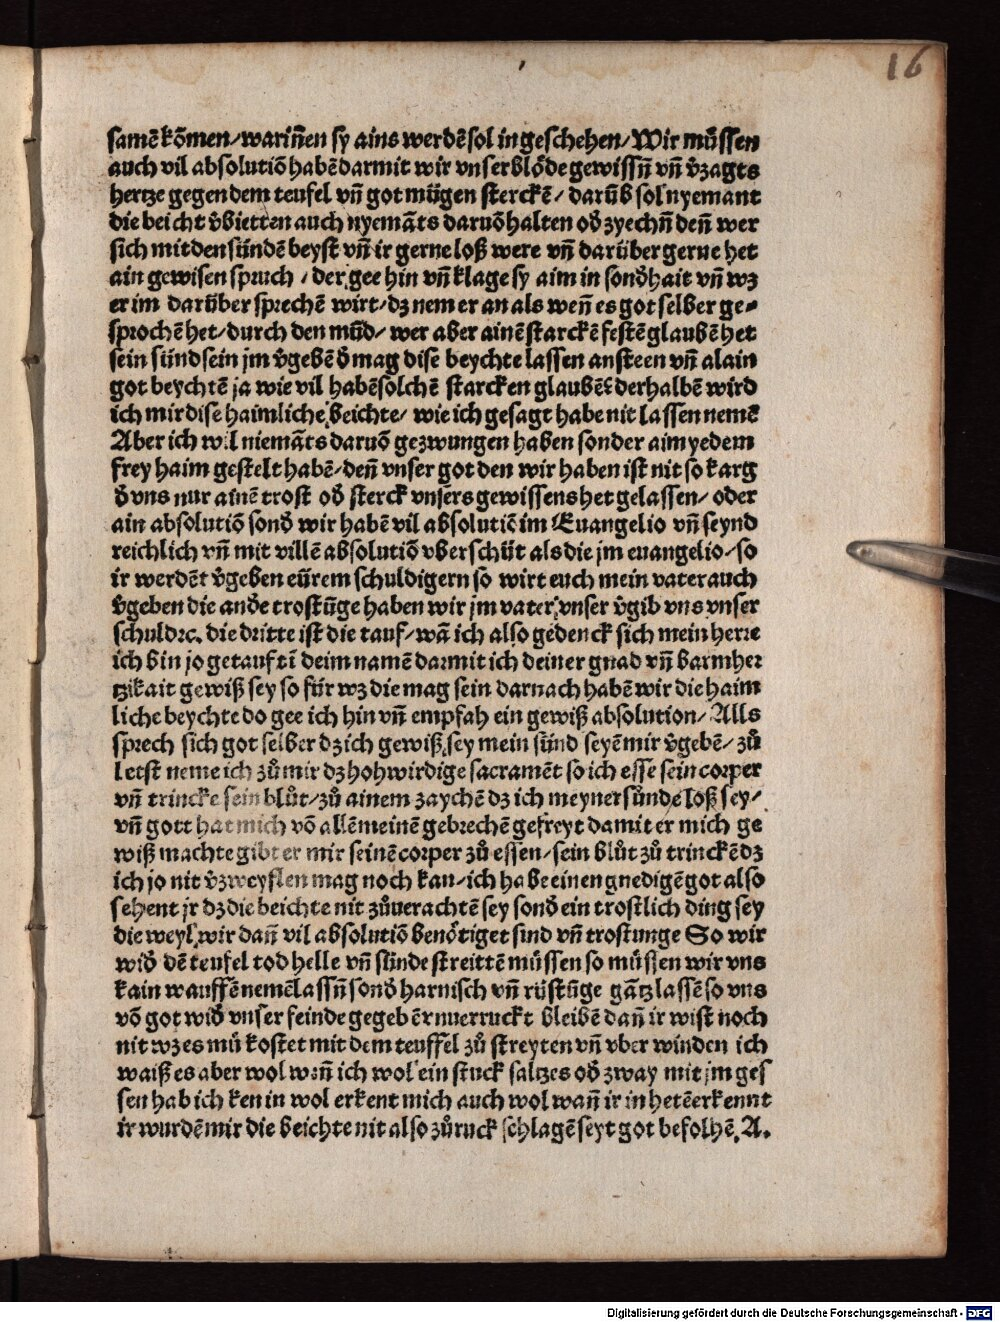 16
samē kōmen/warin̄en sy ains werdē sol in geschehen/Wir müssen
auch vil absolutiō habē darmit wir vnser blöde gewissn̄ vn̄ v̄zagts
hertze gegen dem teufel vn̄ got mügen sterckē/ darūb sol nyemant
die beicht v̄bietten auch nyemāts daruō halten od̄ zyechn̄ den̄ wer
sich mit den sündē beyst vn̄ ir gerne loß were vn̄ darüber gerne het
ain gewisen spruch / der gee hin vn̄ klage sy aim in sond̄hait vn̄ wz
er im darüber sprechē wirt/dz nem er an als wen̄ es got selber ge-
sprochē het/durch den mūd/ wer aber ainē starckē festē glaubē het
sein sünd sein jm v̄gebē d̄ mag dise beychte lassen ansteen vn̄ alain
got beychtē ja wie vil habē solchē starcken glaubē? derhalbē wird
ich mir dise haimliche beichte/ wie ich gesagt habe nit lassen nemē
Aber ich wil niemāts daruō gezwungen haben sonder aim yedem
frey haim gestelt habē/den̄ vnser got den wir haben ist nit so karg
d̄ vns nur ainē trost od̄ sterck vnsers gewissens het gelassen/ oder
ain absolutiō sond̄ wir habē vil absolutiē im Euangelio vn̄ seynd
reichlich vn̄ mit villē absolutiō vberschüt als die jm euangelio/so
ir werdēt v̄geben eürem schuldigern so wirt euch mein vater auch
v̄geben die and̄e trostūge haben wir jm vater vnser v̄gib vns vnser
schuld ꝛc. die dritte ist die tauf/wā ich also gedenck sich mein herre
ich bin jo getauft ī deim namē darmit ich deiner gnad vn̄ barmher
tzikait gewiß sey so für wz die mag sein darnach habē wir die haim
liche beychte do gee ich hin vn̄ empfah ein gewiß absolution/ Alls
sprech sich got selber dz ich gewiß sey mein sünd seyē mir v̄gebē/ zů
letst neme ich zů mir dz hohwirdige sacramēt so ich esse sein corper
vn̄ trincke sein blůt/zů ainem zaychē dz ich meyner sünde loß sey/
vn̄ gott hat mich vō allē meinē gebrechē gefreyt damit er mich ge
wiß machte gibt er mir seinē corper zů essen/sein blůt zů trinckē dz
ich jo nit v̄zweyflen mag noch kan/ich habe einen gnedigē got also
sehent jr dz die beichte nit zůuerachtē sey sond̄ ein trostlich ding sey
die weyl wir dan̄ vil absolutiō benötiget sind vn̄ trostunge So wir
wid̄ dē teufel tod helle vn̄ sünde streittē müssen so müssen wir vns
kain wauffē nemē lassn̄ sond̄ harnisch vn̄ rüstūge gātz lassē so vns
vō got wid̄ vnser feinde gegebē vnuerruckt bleibē dan̄ ir wist noch
nit wz es mü kostet mit dem teuffel zů streyten vn̄ vber winden ich
waiß es aber wol wan̄ ich wol ein stuck saltzes od̄ zway mit jm ges
sen hab ich ken in wol er kent mich auch wol wan̄ ir in hetē erkennt
ir wurdē mir die beichte nit also zůruck schlagē seyt got befolhē. A.
Digitalisierung gefördert durch die Deutsche Forschungsgemeinschaft - DFG